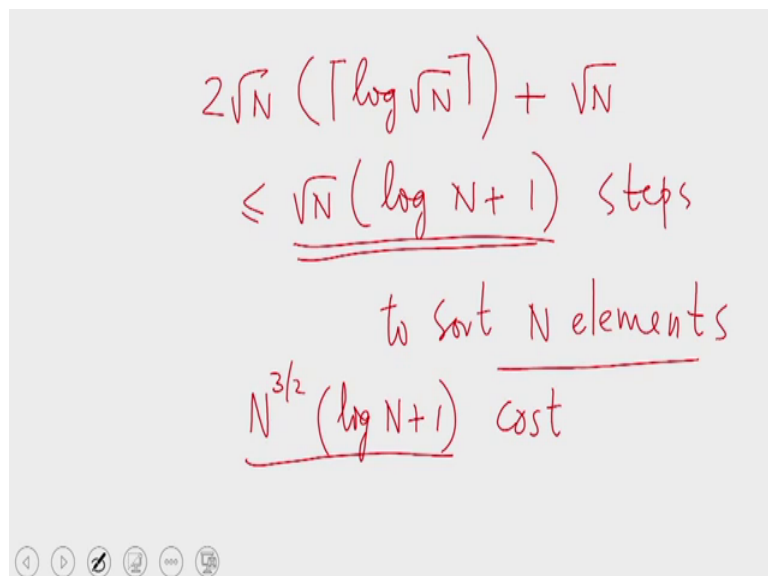 2√N (⌈log √N⌉) + √N
≤ √N (log N + 1) steps
to sort N elements
N^{3/2} (log N + 1) cost